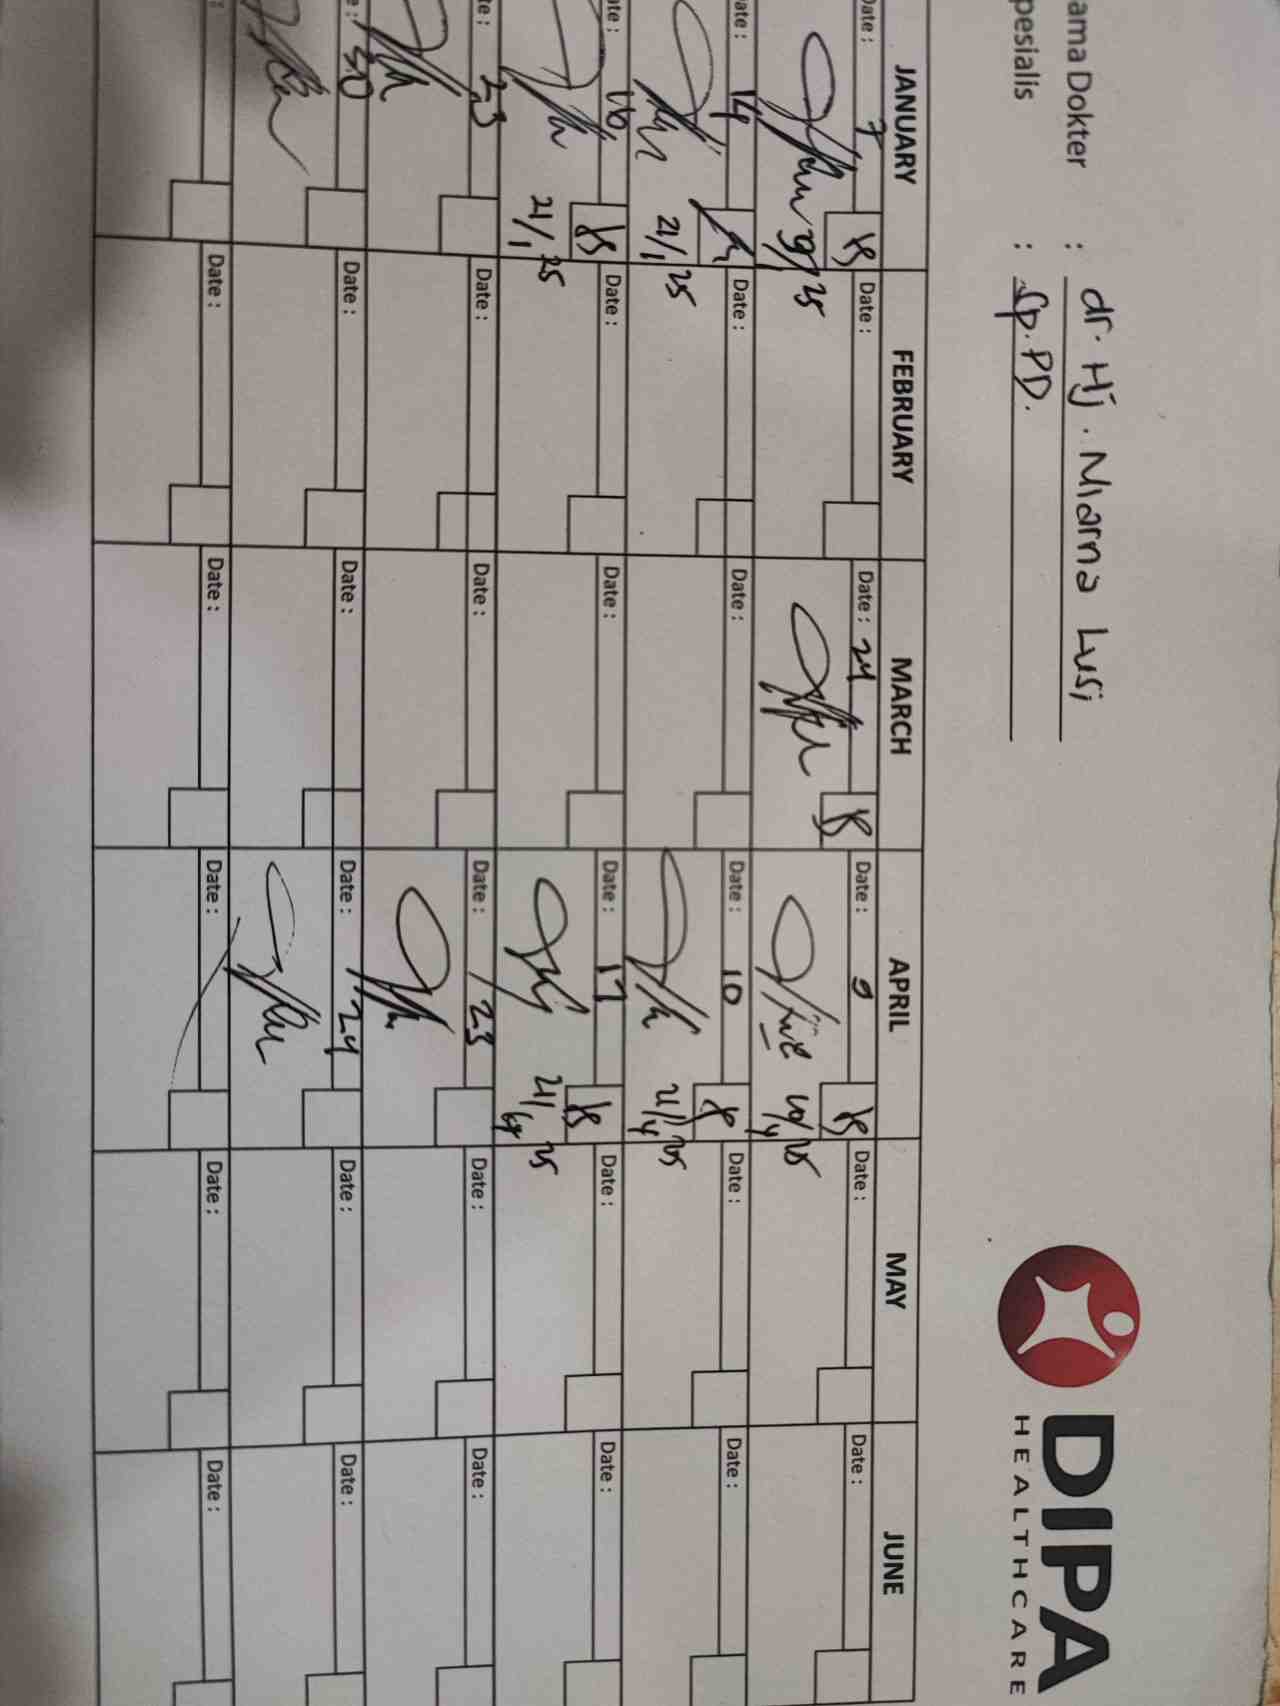 ama Dokter : dr. Hj. Niarna Lusi
pesialis : Sp. PD.
DIPA
HEALTHCARE
JANUARY FEBRUARY MARCH APRIL MAY JUNE
Date : 7 Date : Date : 24 Date : 9 Date : Date :
9/1 25 10/4 25
ate : 14 Date : Date : Date : 10 Date : Date :
21/1 25 21/4 25
ate : 16 Date : Date : Date : 17 Date : Date :
21/1 25 21/4 25
te : 23 Date : Date : Date : 23 Date : Date :
e : 30 Date : Date : Date : 24 Date : Date :
: Date : Date : Date : Date : Date :